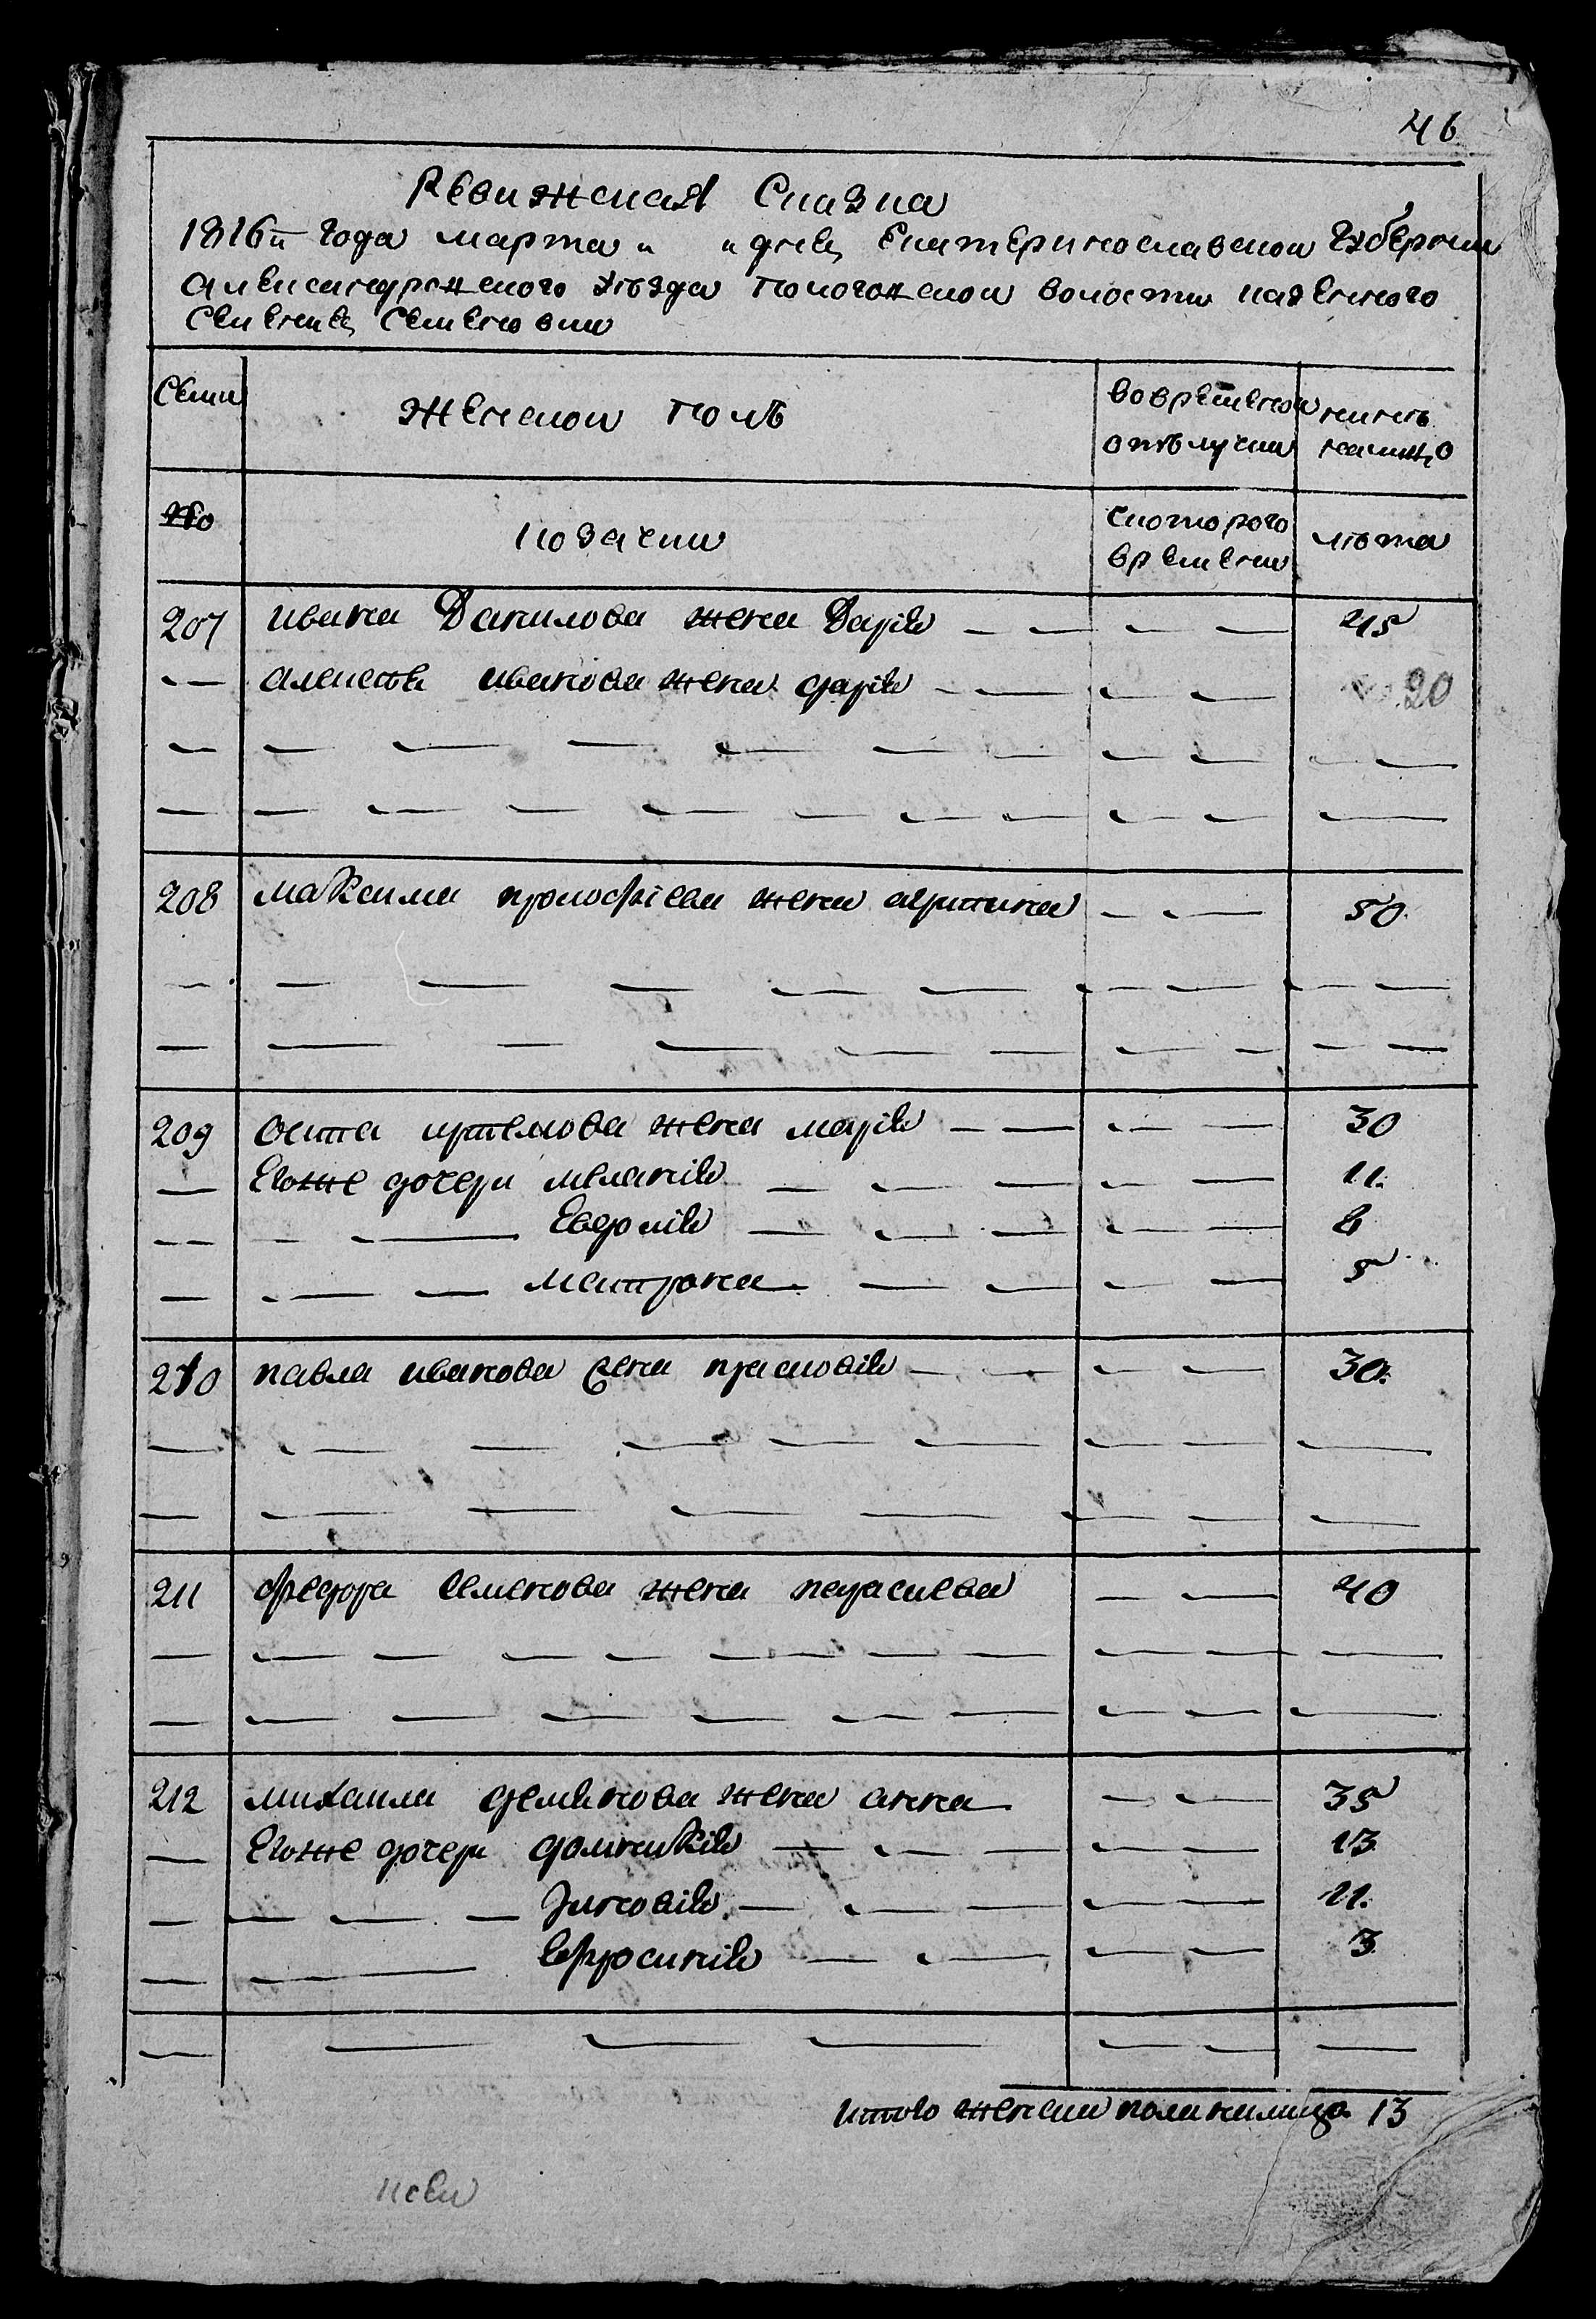 46
Ревижская Сказка
1816й года марта „ „ дня Екатеринославской Губернии
Александровского уезда Пологовской волости казенного
селения Семеновки
Семьи
женской полъ
во временной
отълучки
ныне
налицо
№
козачки
с которого
времени
лѣта
207 ивана Данилова жена Дарія — — — — 45
— алексѣя иванова жена дарія — — — — 20
208 максима прокофіева жена агрипина — — 50
209 осипа артемова жена марія — — — — 30
— Егоже дочери меланія — — — — — 11
— — — — Евдокія — — — — — 8
— — — — матрона — — — — 5
210 павла иванова жена прасковія — — — — 30
211 федора семенова жена параскева — — 40
— — — — — — — — — — — —
212 михаила деменкова жена анна — — 35
— Егоже дочери домникія — — — — — 13
— — — — Зиновія — — — — — 11
— — — Ефросинія — — — — 3
Итого женска пола налицо 13